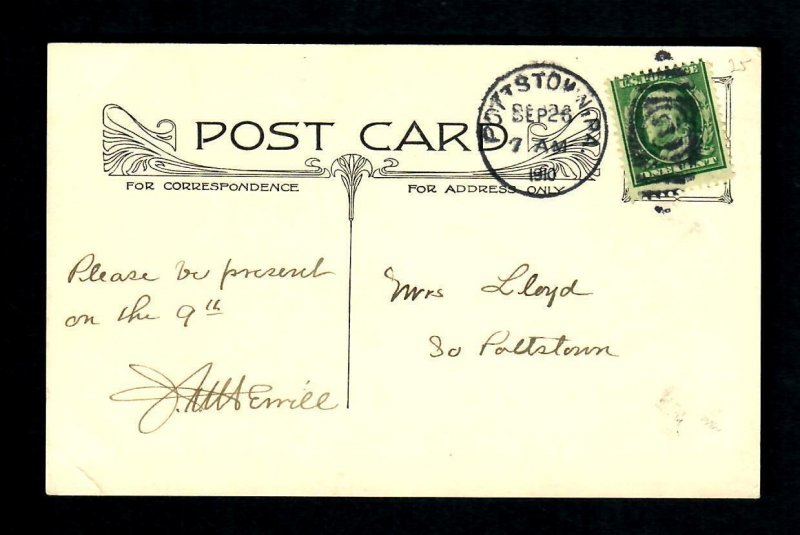 25
U.S. POSTAGE
POTTSTOWN, PA.
SEP 26
7 AM
1910
ONE CENT
POST CARD
FOR CORRESPONDENCE
FOR ADDRESS ONLY
Please be present
on the 9th
Mrs Lloyd
So Pottstown